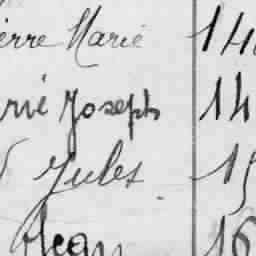 erre Marie 14
rie Joseph 14
Jules 15
Jean 16